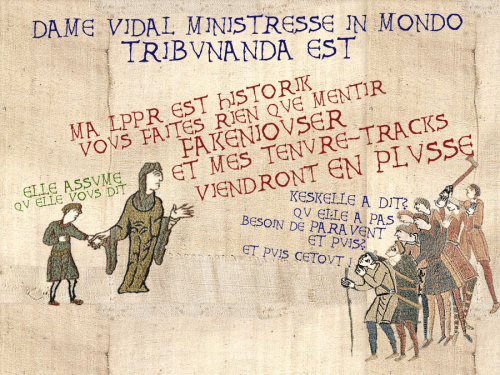 DAME VIDAL MINISTRESSE IN MONDO
TRIBVNANDA EST
MA LPPR EST HISTORIK
VOVS FAITES RIEN QVE MENTIR
FAKENIOVSER
ET MES TENVRE-TRACKS
VIENDRONT EN PLVSSE
ELLE ASSVME
QV ELLE VOVS DIT
KESKELLE A DIT?
QV ELLE A PAS
BESOIN DE PARAVENT
ET PVIS?
ET PVIS CETOVT !